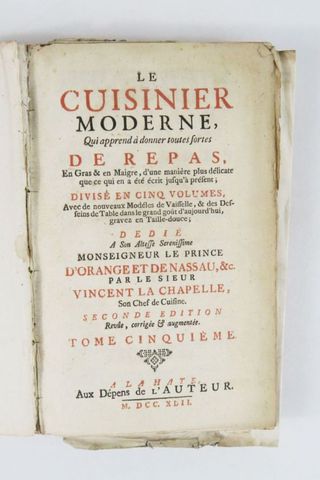 LE
CUISINIER
MODERNE,
Qui apprend à donner toutes sortes
DE REPAS,
En Gras & en Maigre, d'une manière plus délicate
que ce qui en a été écrit jusqu'à préſent;
DIVISÉ EN CINQ VOLUMES,
Avec de nouveaux Modéles de Vaiſſelle, & des Deſ-
ſeins de Table dans le grand goût d'aujourd'hui,
gravez en Taille-douce;
DEDIÉ
A Son Alteſſe Sereniſſime
MONSEIGNEUR LE PRINCE
D'ORANGE ET DE NASSAU, &c.
PAR LE SIEUR
VINCENT LA CHAPELLE,
Son Chef de Cuiſine.
SECONDE EDITION
Revûe, corrigée & augmentée.
TOME CINQUIÉME.
A LA HAYE,
Aux Dépens de L'AUTEUR.
M. DCC. XLII.